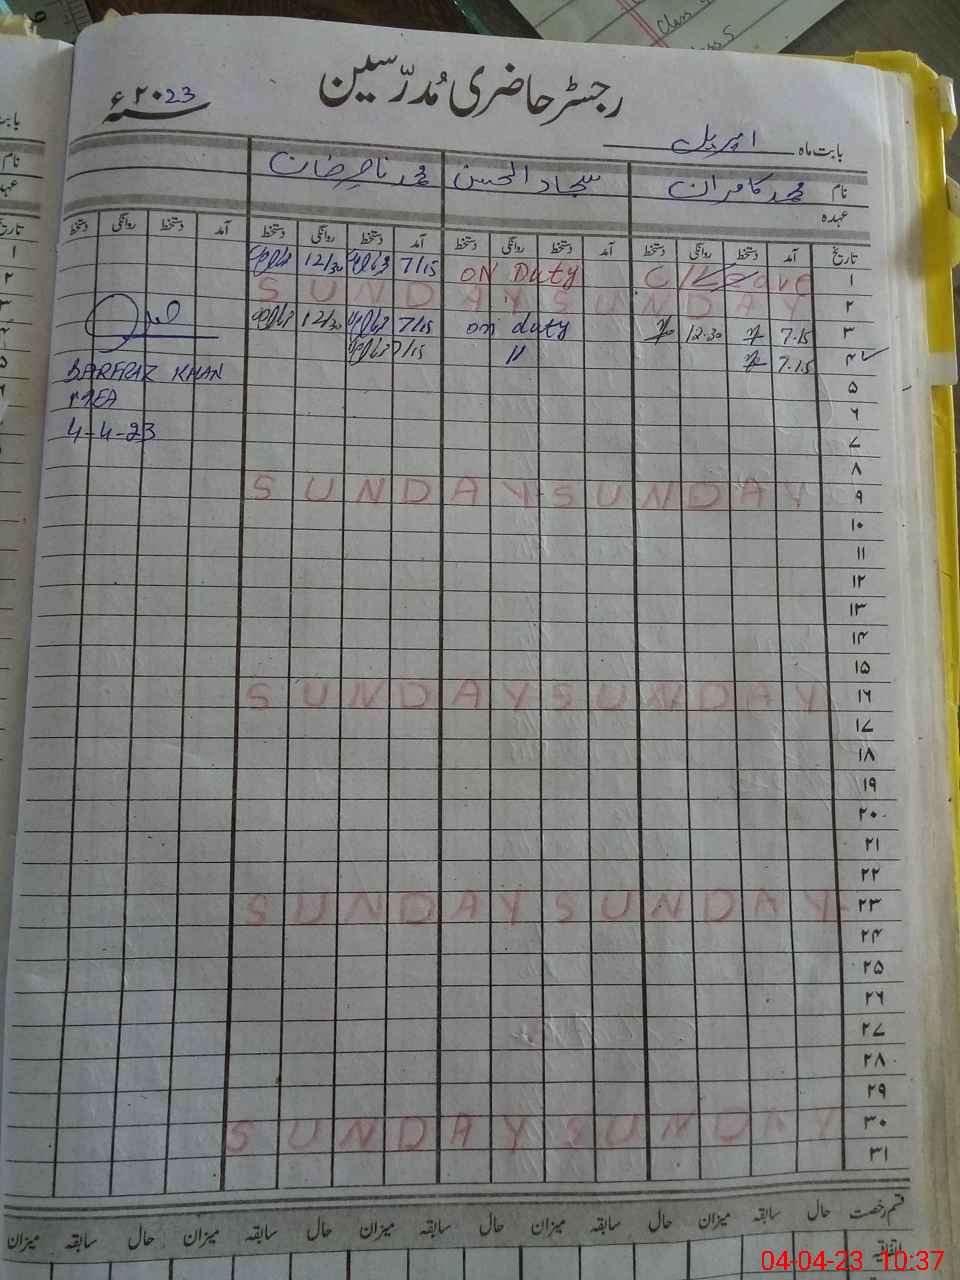 رجسٹر حاضری مُدرّسین
سنہ ۲۰23ء
بابت ماہ اپریل
نام محمد کامران سجاد الحسن محمد ناصر خان
عہدہ
تاریخ آمد دستخط روانگی دستخط آمد دستخط روانگی دستخط آمد دستخط روانگی دستخط آمد دستخط روانگی دستخط
۱ C/Leave ON Duty 7/15 12/30
۲ SUNDAY SUNDAY
۳ 7.15 12.30 on duty 7/15 12/30
۴ 7.15 〃 7/15
SARFRAZ KHAN
۵
۶
4-4-23
۷
۸
۹ SUNDAY SUNDAY
۱۰
۱۱
۱۲
۱۳
۱۴
۱۵
۱۶ SUNDAY SUNDAY
۱۷
۱۸
۱۹
۲۰
۲۱
۲۲
۲۳ SUNDAY SUNDAY
۲۴
۲۵
۲۶
۲۷
۲۸
۲۹
۳۰ SUNDAY SUNDAY
۳۱
قسم رخصت حال سابقہ میزان حال سابقہ میزان حال سابقہ میزان حال سابقہ میزان حال سابقہ میزان
اتفاقیہ
04-04-23 10:37